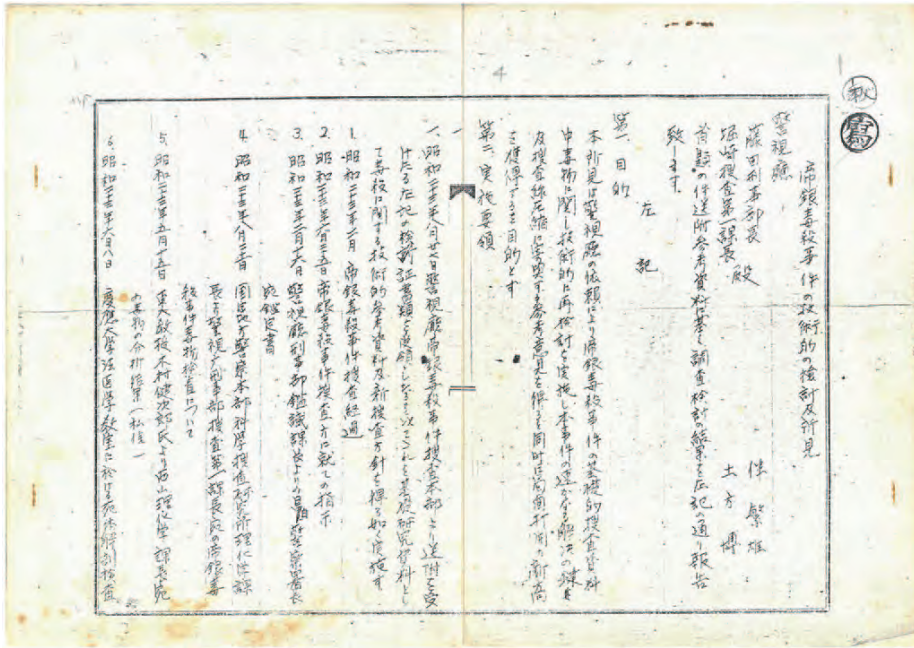 4
秘
帝銀毒殺事件の技術的検討及所見
警視廳
藤田刑事部長
堀崎捜査第一課長 殿
伴 繁雄
土方 博
首題の件送附参考資料に基く調査検討の結果を左記の通り報告
致します。
左記
第一、目的
本所見は警視廳の依頼により帝銀毒殺事件の基礎的捜査資料
中毒物に関し技術的に再検討を実施し本事件の速かなる解決の
及捜査線圧縮に寄与する参考意見を得ると同時に
を獲得するを目的とす
第二、実施要領
一、昭和二十三年八月廿七日警視廳帝銀毒殺事件捜査本部より送附を受
けたる左記の検討証書類を受領したるを以てこれを基礎研究資料とし
て毒殺に関する技術的参考資料及新捜査方針を得る如く実施す
1. 昭和二十三年二月 帝銀毒殺事件捜査経過
2. 昭和二十三年六月二十五日 帝銀毒殺事件捜査方に就ての指示
3. 昭和二十三年二月二十六日 警視廳刑事部鑑識課長より目白警察署長
宛鑑定書
4. 昭和二十三年八月二十三日 国家地方警察本部科学捜査研究所理化学課
長より警視廳刑事部捜査第一課長宛の帝銀毒
殺事件毒物検査について
5. 昭和二十三年五月二十五日 東大教授木村健次郎氏より西山理化学課長宛
の毒物の分析結果(私信)
6. 昭和二十三年六月八日 慶應大学法医学教室に於ける死体解剖検査